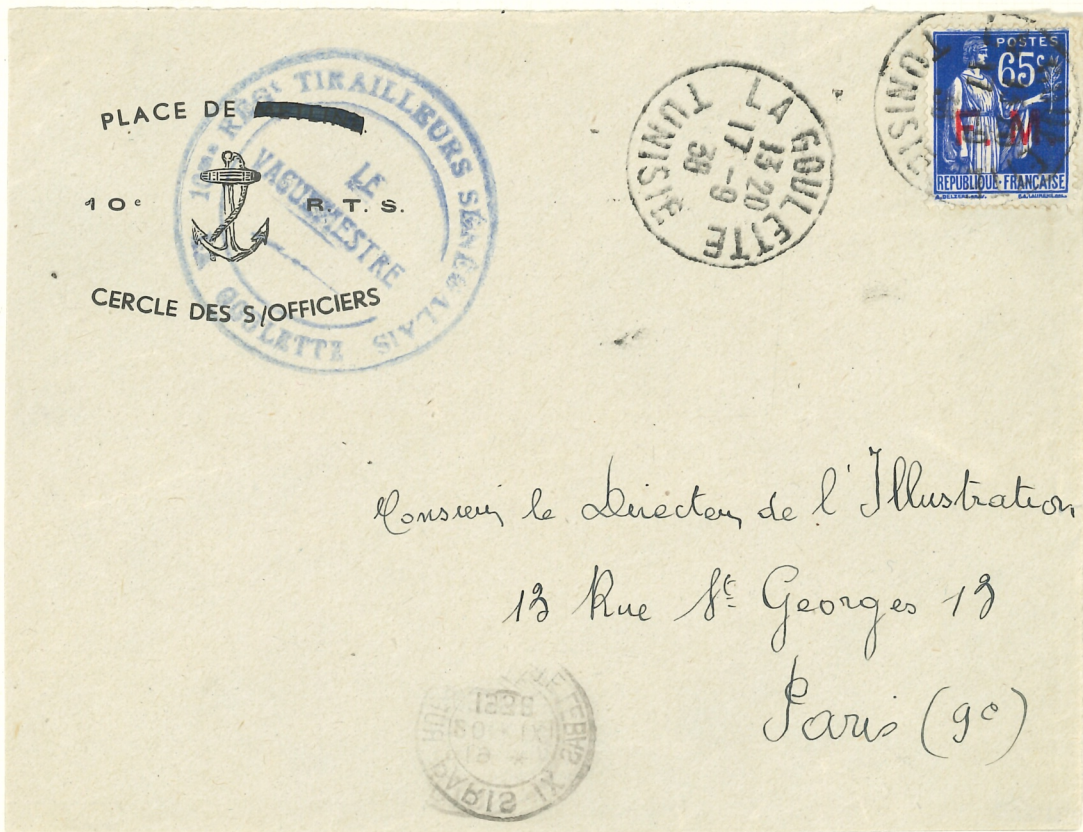 PLACE DE
10e R.T.S.
CERCLE DES S/OFFICIERS
10me REGt TIRAILLEURS SÉNÉGALAIS
LE
VAGUEMESTRE
GOULETTE
LA GOULETTE
13 20
17 - 9
38
TUNISIE
POSTES
65c
F. M.
REPUBLIQUE-FRANÇAISE
TUNISIE
Monsieur le Directeur de l'Illustration
13 Rue St Georges 13
Paris (9e)
PARIS IX